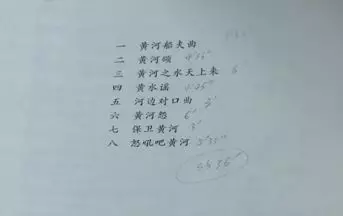 一 黄河船夫曲
二 黄河颂 4'26"
三 黄河之水天上来
四 黄水谣 4'25"
五 河边对口曲 3'
六 黄河怨 6'
七 保卫黄河 3'
八 怒吼吧黄河 3'35"